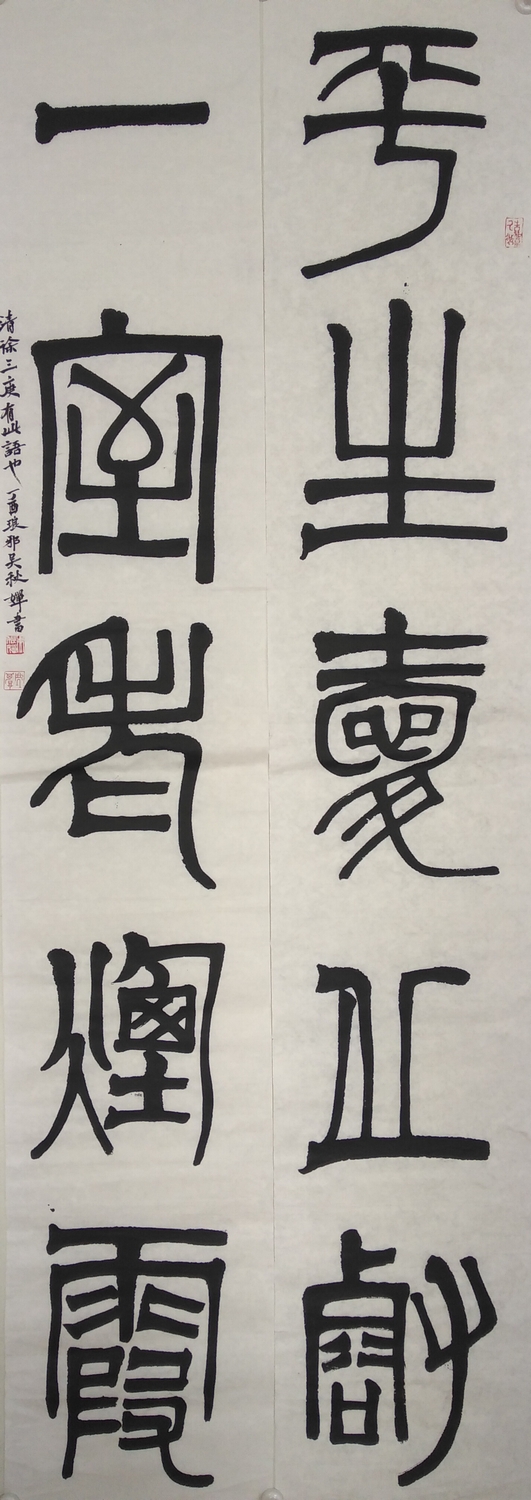 平生愛丘㕡
一室老煙霞
清徐三庚有此語也 丁酉琅邪吴秋嬋書